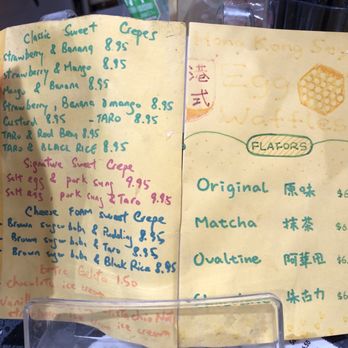 Classic Sweet Crepes
Strawberry & Banana 8.95
Strawberry & Mango 8.95
Mango & Banana 8.95
Strawberry, Banana & mango 8.95
Custard 8.95 - TARO 8.95
TARO & Red Bean 8.95
TARO & BLACK RICE 8.95
Signature Sweet Crepe
Salt egg & pork sung 9.95
Salt egg, pork sung & Taro 9.95
Cheese Foam Sweet Crepe
- Brown sugar boba & Pudding 8.95
- Brown sugar boba & Taro 8.95
- Brown sugar boba & Black Rice 8.95
1.50
chocolate ice cream
Vanilla
ice cream
Hong Kong
港式
Egg
Waffles
FLAVORS
Original 原味 $6
Matcha 抹茶 $6
Ovaltine 阿華田 $6
朱古力 $6